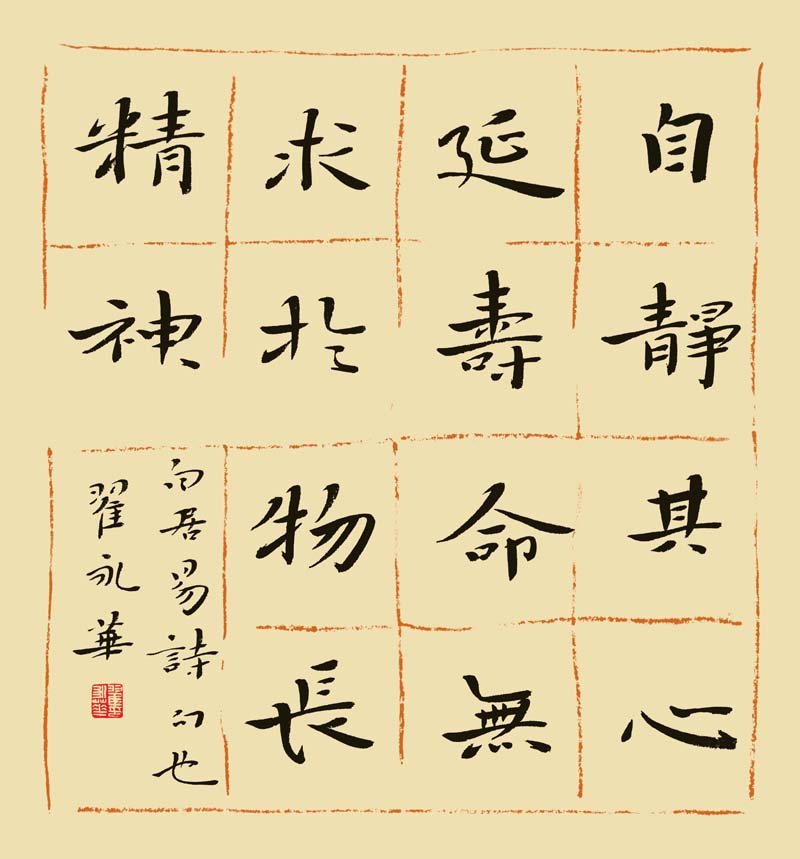 自靜其心
延壽命無
求於物長
精神
白居易詩句也
翟永華